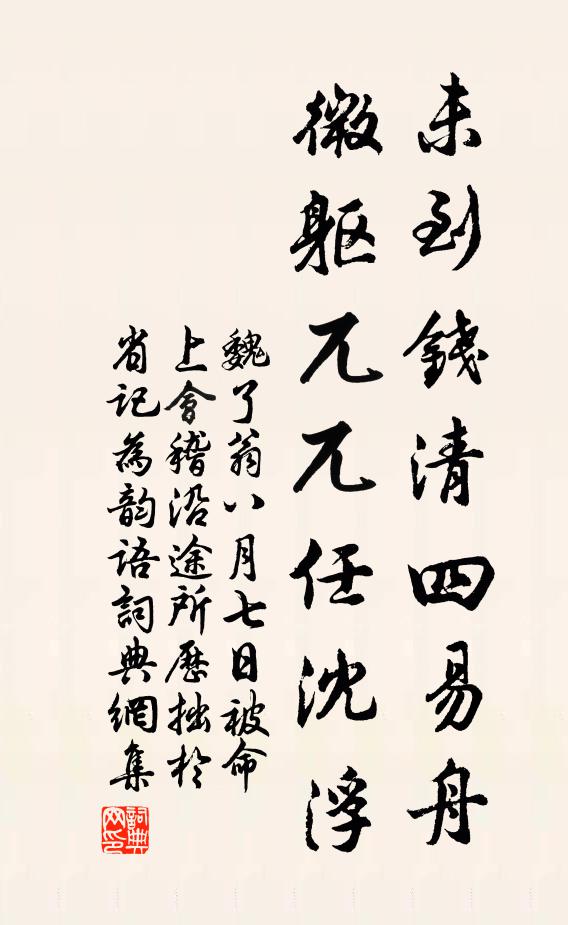 未到錢清四易舟
微軀兀兀任沈浮
魏了翁八月七日被命
上會稽沿途所歷拙於
省記為韵語詞典網集
詞典
网印